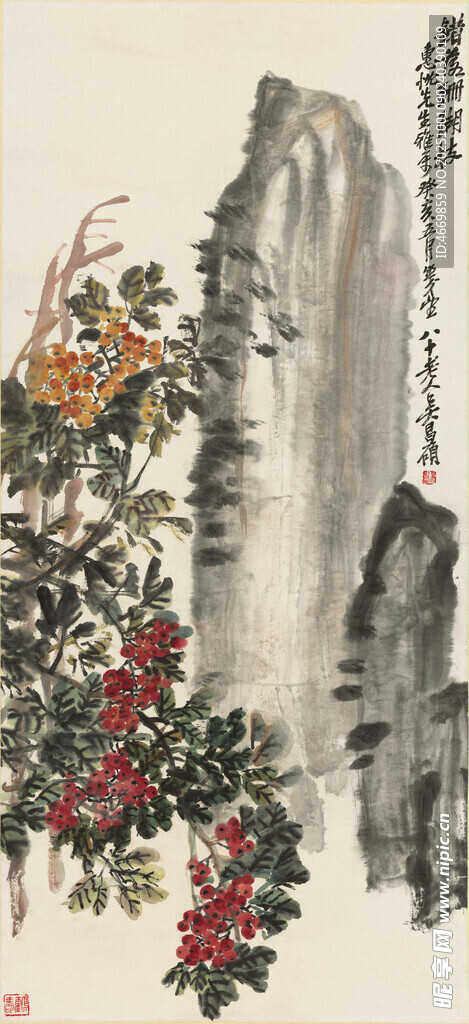 錯落珊瑚枝
惠忱先生雅屬癸亥五月
八十老人吳昌碩
ID:4669859 NO:20251001090240390109
昵享网 www.nipic.cn